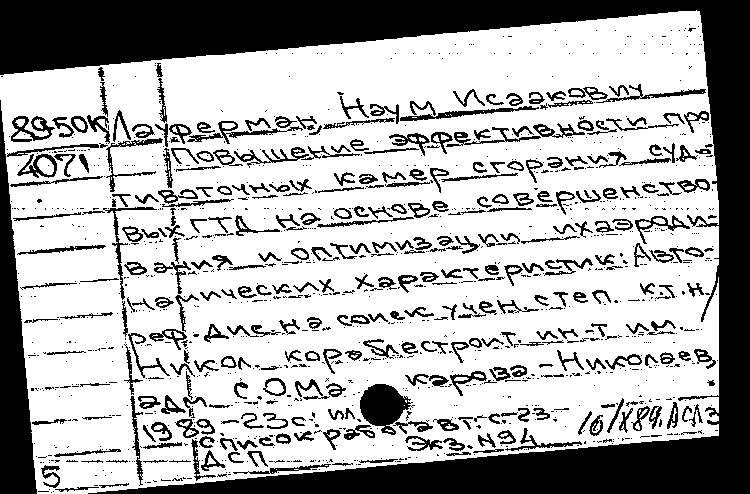 89-50К Лауферман, Наум Исаакович
4071 Повышение эффективности про
тивоточных камер сгорания судо
вых ГТД на основе совершенство-
вания и оптимизации их аэроди-
намических характеристик: Авто-
реф. дис. на соиск. учен. степ. к.т.н./
Никол. кораблестроит. ин-т им.
адм. С.О. Макарова - Николаев,
1989 - 23 с.: ил
Список работ авт.: с. 23.
ДСП Экз. №94 16/X89. ДСЛЗ
5